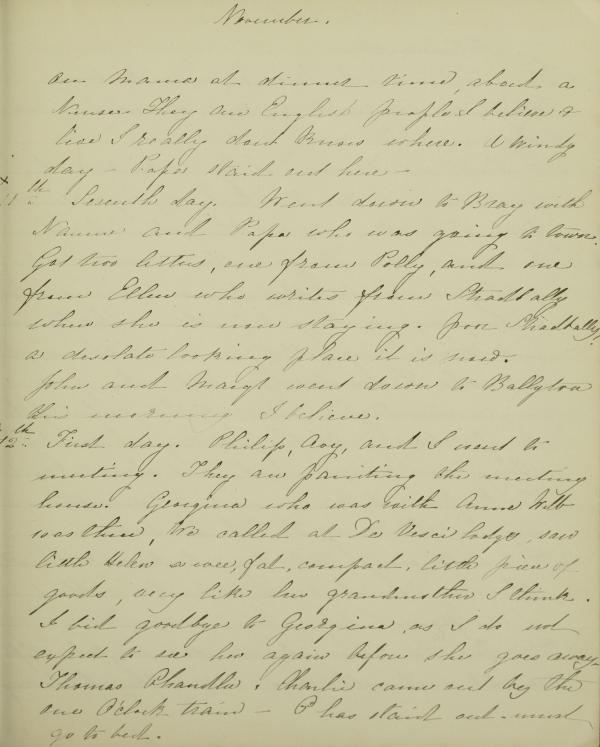 November.
on Mama at dinner time, about a
Nurse. They are English people I believe &
live I really dont know where. A windy
day – Papa staid out here –
x
11th Seventh day. Went down to Bray with
Nannie and Papa who was going to town.
Got two letters, one from Polly, and one
from Ellen who writes from Stradbally
where she is now staying. poor Stradbally!
a desolate looking place it is now.
John and Margt went down to Ballytore
this morning I believe.
12th First day. Philip, Avy, and I went to
meeting. They are painting the meeting
house. Georgina who was with Anne Webb
was there, We called at De Vesci lodge, saw
little Helen a wee, fat, compact, little piece of
goods, very like her grandmother I think.
I bid goodbye to Georgina, as I do not
expect to see her again before she goes away.
Thomas Chandlee & Charlie came out by the
one O'Clock train – P has staid out – must
go to bed.